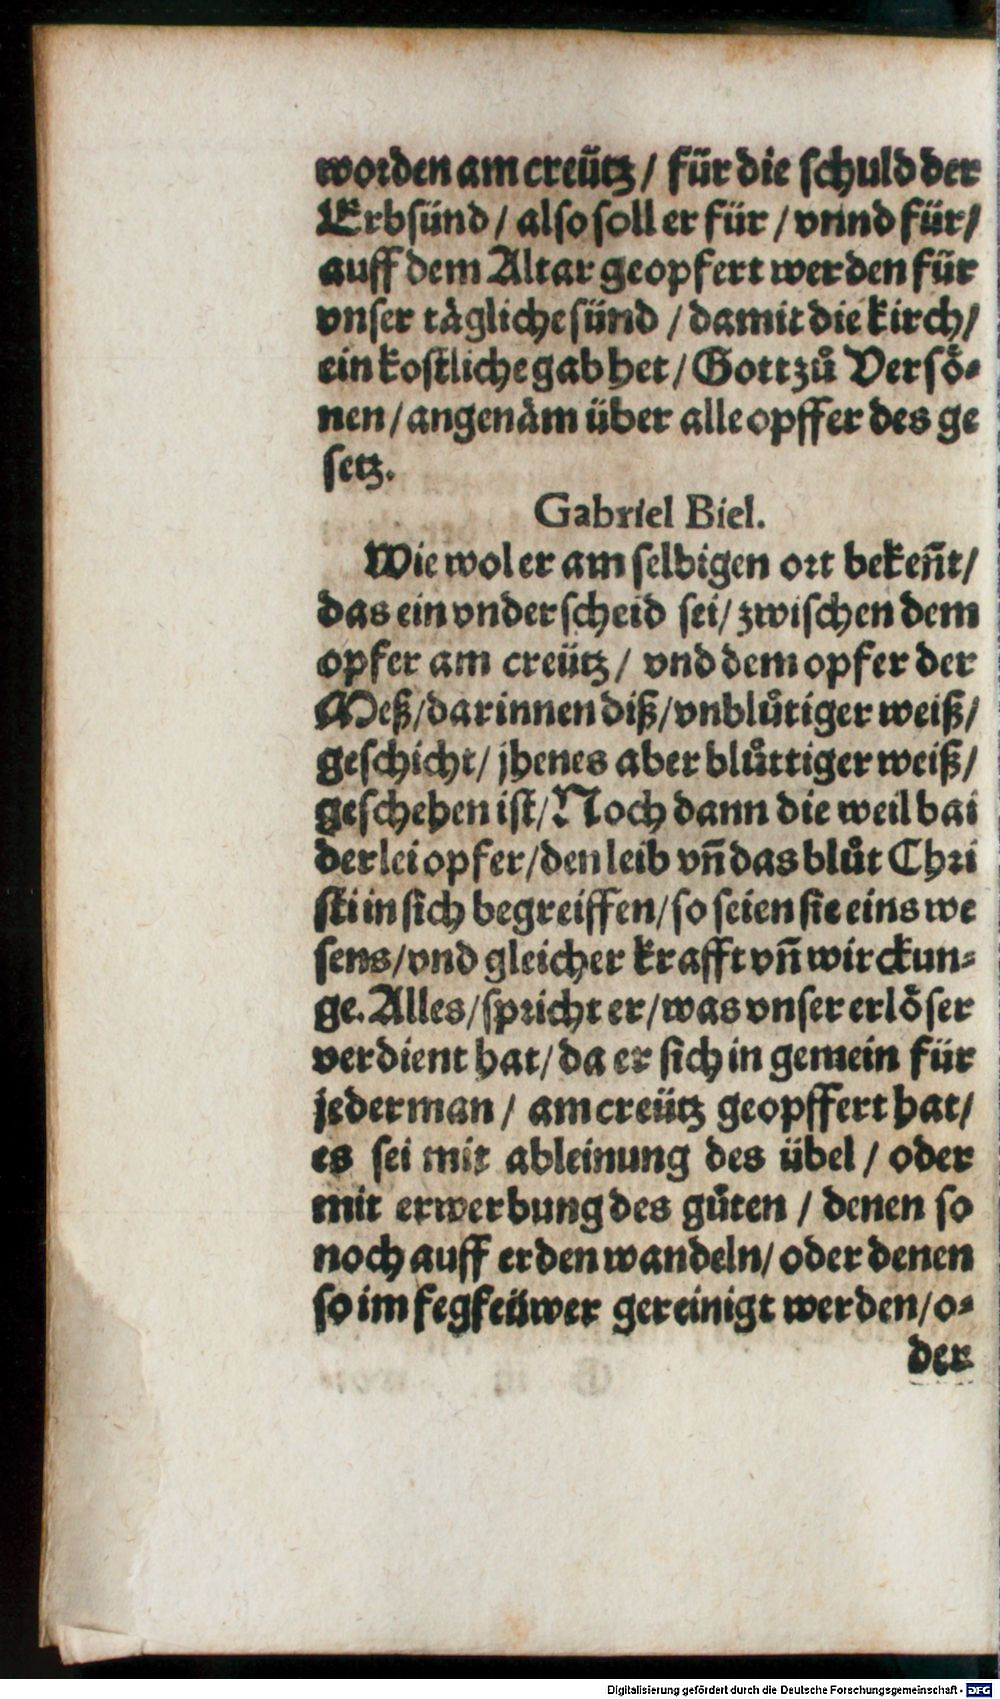 worden am creütz / für die schuld der
Erbsünd / also soll er für / vnnd für/
auff dem Altar geopfert werden für
vnser täglichesünd / damit die kirch/
ein kostliche gab het / Gott zů Versö-
nen / angenäm über alle opffer des ge
setz.
Gabriel Biel.
Wie wol er am selbigen ort bekeñt/
das ein vnderscheid sei/ zwischen dem
opfer am creütz / vnd dem opfer der
Meß/darinnen diß/vnblůtiger weiß/
geschicht/ jhenes aber blůttiger weiß/
geschehen ist/ Noch dann die weil bai
derlei opfer/den leib vñ das blůt Chri
sti in sich begreiffen/so seien sie eins we
sens/vnd gleicher krafft vñ wirckun-
ge. Alles/spricht er/was vnser erlöser
verdient hat/da er sich in gemein für
jederman / am creütz geopffert hat/
es sei mit ableinung des übel / oder
mit erwerbung des gůten / denen so
noch auff erden wandeln/ oder denen
so im fegfeüwer gereinigt werden/o-
der
Digitalisierung gefördert durch die Deutsche Forschungsgemeinschaft - DFG